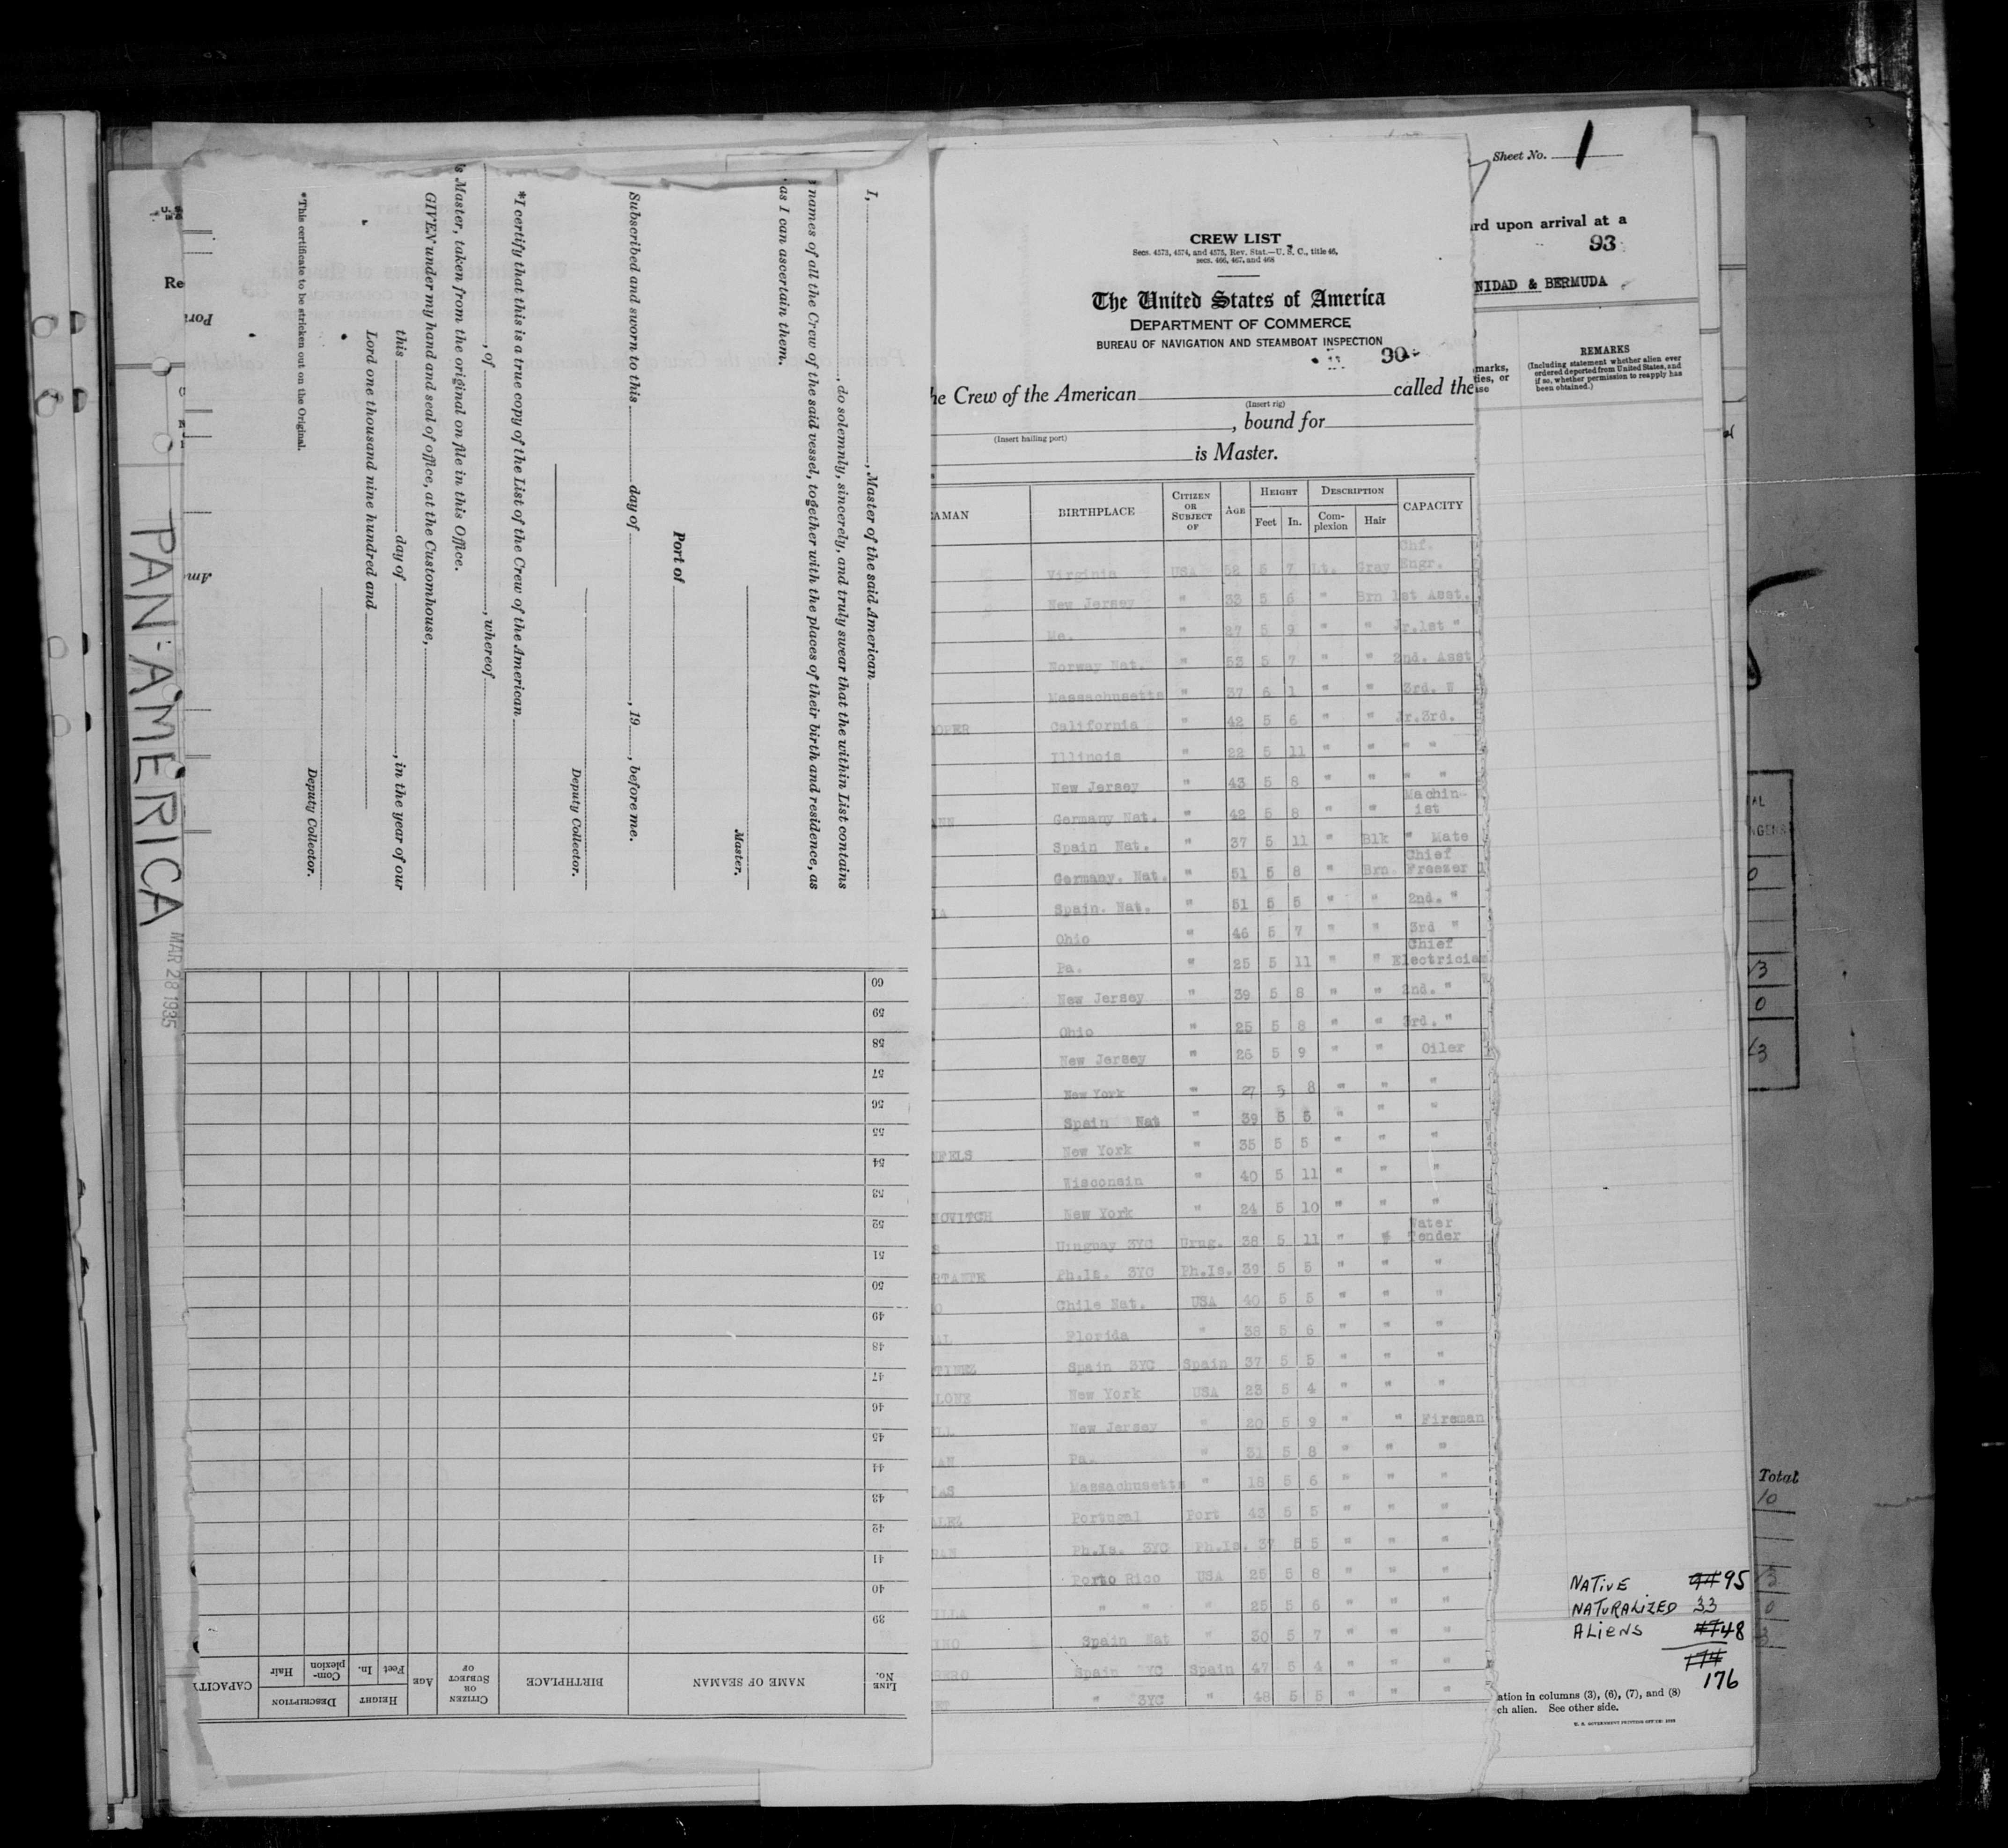 PAN-AMERICA
MAR 28 1935
Re
I, , Master of the said American
, do solemnly, sincerely, and truly swear that the within List contains
names of all the Crew of the said vessel, together with the places of their birth and residence, as
as I can ascertain them.
Master.
Port of
Subscribed and sworn to this day of , 19 , before me.
Deputy Collector.
*I certify that this is a true copy of the List of the Crew of the American
, of , whereof
s Master, taken from the original on file in this Office.
GIVEN under my hand and seal of office, at the Customhouse,
this day of , in the year of our
Lord one thousand nine hundred and
Deputy Collector.
*This certificate to be stricken out on the Original.
60
59
58
57
56
55
54
53
52
51
50
49
48
47
46
45
44
43
42
41
40
39
LINE No. NAME OF SEAMAN BIRTHPLACE CITIZEN OR SUBJECT OF AGE HEIGHT Feet In. DESCRIPTION Complexion Hair CAPACITY
CREW LIST
Secs. 4573, 4574, and 4575, Rev. Stat.—U. S. C., title 46,
secs. 466, 467, and 468
The United States of America
DEPARTMENT OF COMMERCE
BUREAU OF NAVIGATION AND STEAMBOAT INSPECTION
30
he Crew of the American called the
(Insert rig)
, bound for
(Insert hailing port)
is Master.
AMAN BIRTHPLACE CITIZEN OR SUBJECT OF AGE HEIGHT Feet In. DESCRIPTION Com-plexion Hair CAPACITY
Virginia USA 52 5 7 Lt. Gray Chf. Engr.
New Jersey " 33 5 6 " Brn 1st Asst.
Me. " 27 5 9 " " Jr.1st "
Norway Nat. " 53 5 7 " " 2nd. Asst
Massachusetts " 37 6 1 " " 3rd. W
OPER California " 42 5 6 " " Jr.3rd.
Illinois " 22 5 11 " " " "
New Jersey " 43 5 8 " " " "
NN Germany Nat. " 42 5 8 " " Machin-ist
Spain Nat. " 37 5 11 " Blk " Mate
Germany. Nat. " 51 5 8 " Brn. Chief Freezer
IA Spain. Nat. " 51 5 5 " " 2nd. "
Ohio " 46 5 7 " " 3rd "
Pa. " 25 5 11 " " Chief Electrician
New Jersey " 39 5 8 " " 2nd. "
Ohio " 25 5 8 " " 3rd. "
New Jersey " 26 5 9 " " Oiler
New York " 27 5 8 " " "
Spain Nat " 39 5 5 " " "
FELS New York " 35 5 5 " " "
Wisconsin " 40 5 11 " " "
NOVITCH New York " 24 5 10 " " "
S Uruguay 3YC Urug. 38 5 11 " " Water Tender
RTANTE Ph.Is. 3YC Ph.Is. 39 5 5 " " "
O Chile Nat. USA 40 5 5 " " "
AL Florida " 38 5 6 " " "
TINEZ Spain 3YC Spain 37 5 5 " " "
LONE New York USA 23 5 4 " " "
LL New Jersey " 20 5 9 " " Fireman
AN Pa. " 31 5 8 " " "
AS Massachusetts " 18 5 6 " " "
ALEZ Portugal Port 43 5 5 " " "
Ph.Is. 3YC Ph.Is. 37 5 5 " " "
Porto Rico USA 25 5 8 " " "
ILLA " " " 25 5 6 " " "
INO Spain Nat " 30 5 7 " " "
RERO Spain 3YC Spain 47 5 4 " " "
ET " 3YC " 48 5 5 " " "
Sheet No. 1
rd upon arrival at a
93
NIDAD & BERMUDA
marks,
ties, or
se
REMARKS
(Including statement whether alien ever
ordered deported from United States, and
if so, whether permission to reapply has
been obtained.)
Total
10
NATIVE 94 95
NATURALIZED 33
ALIENS 47 48
174
176
ation in columns (3), (6), (7), and (8)
ch alien. See other side.
U. S. GOVERNMENT PRINTING OFFICE